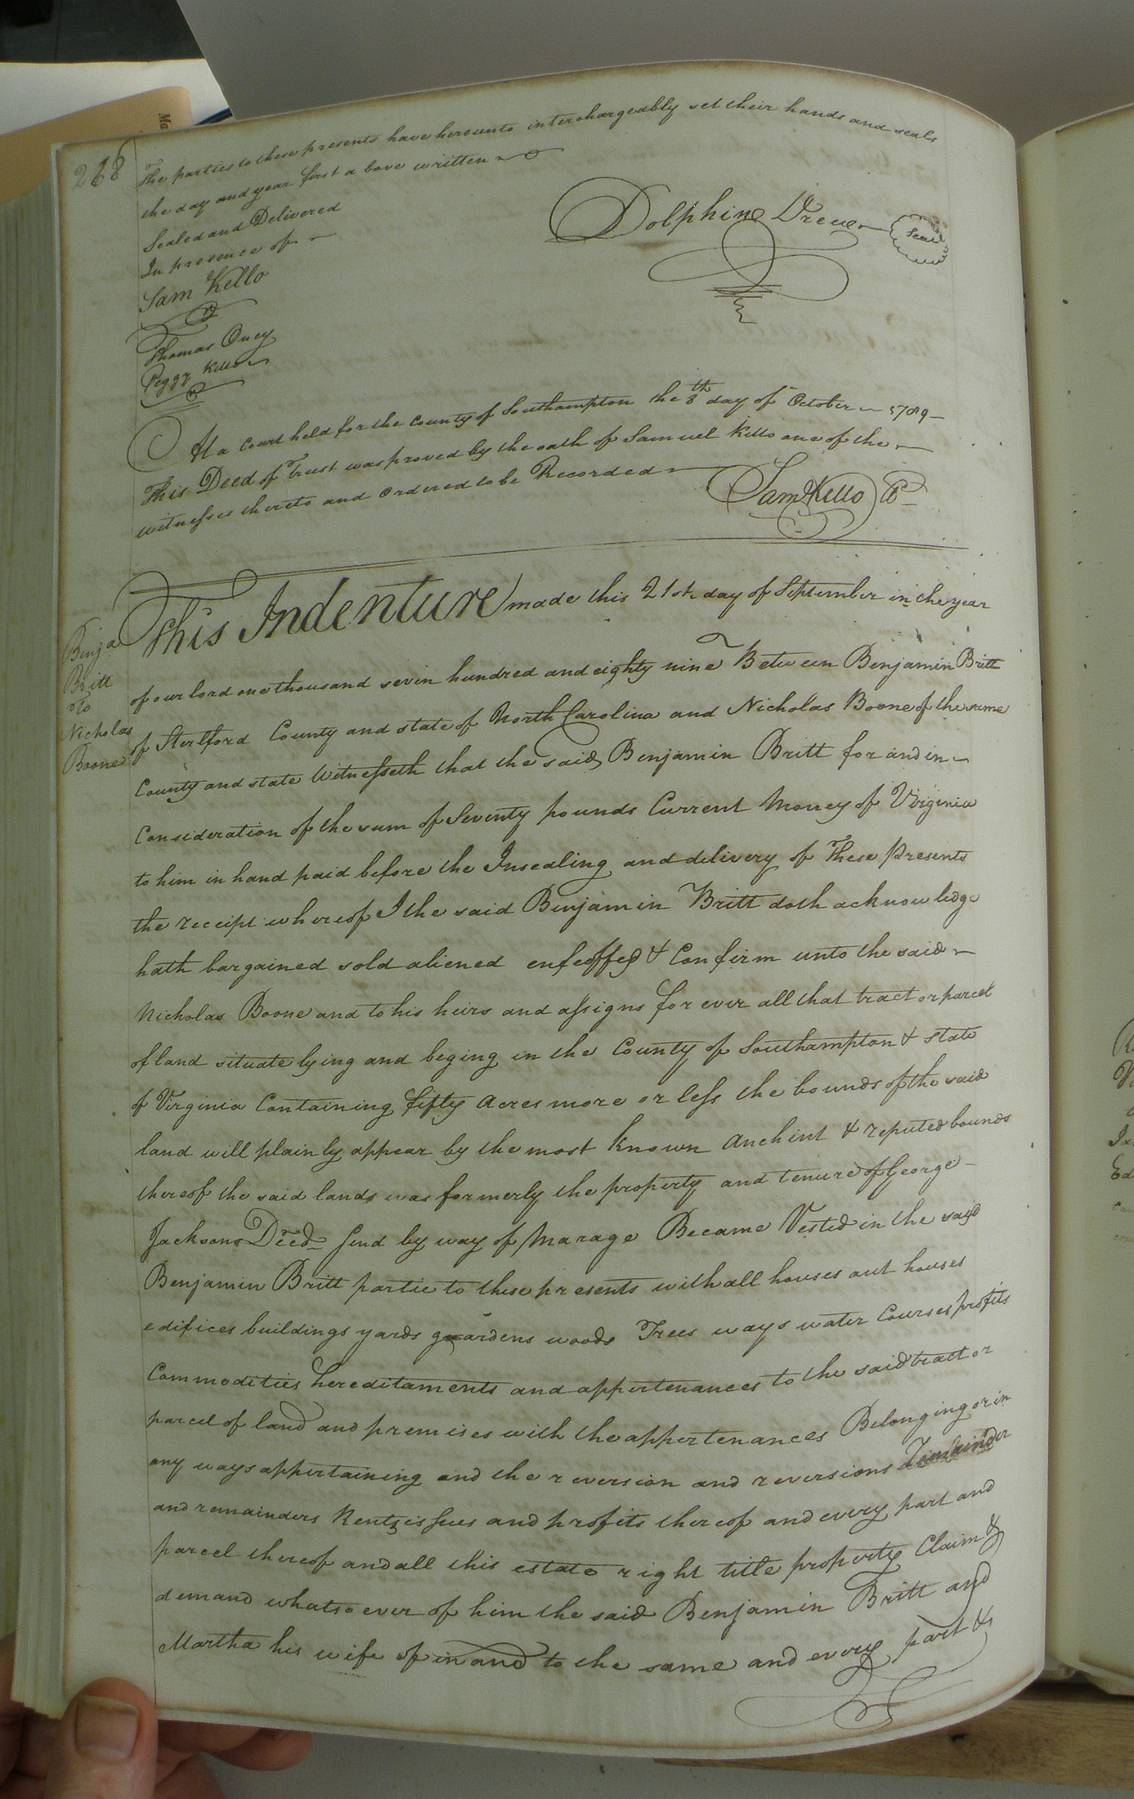 268
The parties to these presents have hereunto interchargeably set their hands and seals
the day and year first a bove written
Sealed and Delivered
In presence of
Dolphine Drewe Seal
Sam Kello
Thomas Oney
Peggy Kello
At a Court held for the County of Southampton the 8th day of October 1789
This Deed of Trust was proved by the oath of Samuel Kello one of the
witnesses thereto and ordered to be Recorded
Sam Kello
Benja
Britt
to
Nicholas
Boone
This Indenture made this 21st day of September in the year
of our lord one thousand seven hundred and eighty nine Between Benjamin Britt
of Hertford County and state of North Carolina and Nicholas Boone of the same
County and state Witnesseth that the said Benjamin Britt for and in
Consideration of the sum of Seventy pounds Current Money of Virginia
to him in hand paid before the Insealing and delivery of These Presents
the receipt whereof I the said Benjamin Britt doth acknowledge
hath bargained sold aliened enfeoffed & Confirm unto the said
Nicholas Boone and to his heirs and assigns for ever all that tract or parcel
of land situate lying and beging in the County of Southampton & state
of Virginia Containing fifty Acres more or less the bounds of the said
land will plainly appear by the most known Anchint & reputed bounds
thereof the said lands was formerly the property and tenure of George
Jacksons Deed And by way of Marage Became Vested in the sayd
Benjamin Britt partie to these presents with all houses out houses
edifices buildings yards guardens woods Trees ways water Courses profits
Commodities hereditaments and appertenances to the said tract or
parcel of land and premises with the appertenances Belonging or in
any ways appertaining and the reversion and reversions Remainder
and remainders Rents issues and profits thereof and every part and
parcel thereof and all this estate right title property Claim &
demand whatsoever of him the said Benjamin Britt and
Martha his wife of in and to the same and every part &